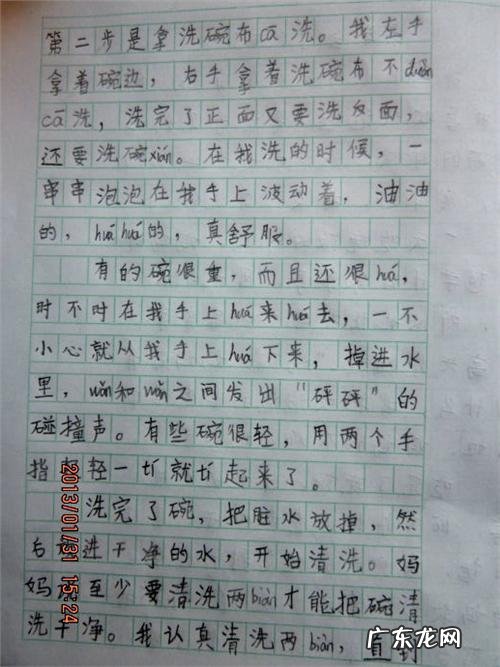 第二步是拿洗碗布cā洗。我左手
拿着碗边，右手拿着洗碗布不duàn
cā洗，洗完了正面又要洗反面，
还要洗碗xián。在我洗的时候，一
串串泡泡在我手上波动着，油油
的，huá huá的，真舒服。
有的碗很重，而且还很huá，
时不时在我手上huá来huá去，一不
小心就从我手上huá下来，掉进水
里，wǎn和wǎn之间发出“砰砰”的
碰撞声。有些碗很轻，用两个手
指轻轻一tí就tí起来了。
洗完了碗，把脏水放掉，然
后放进干净的水，开始清洗。妈
妈说至少要清洗两biàn才能把碗清
洗干净。我认真清洗两biàn，直到
2013/01/31 15:24
广东龙网